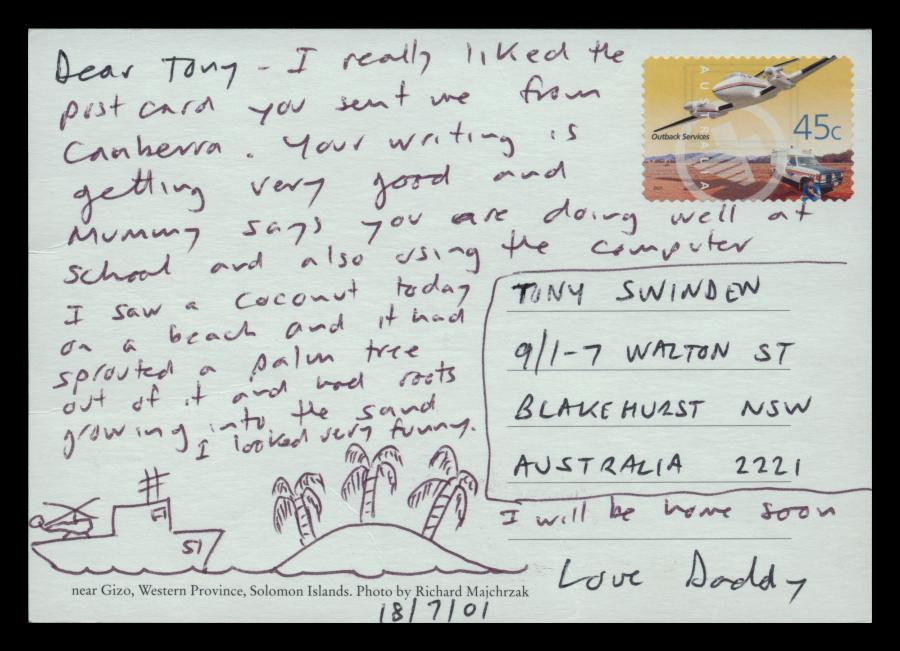 Dear Tony - I really liked the
post card you sent me from
Canberra. Your writing is
getting very good and
Mummy says you are doing well at
school and also using the computer
I saw a coconut today
on a beach and it had
sprouted a palm tree
out of it and had roots
growing into the sand
I looked very funny.
AUSTRALIA
Outback Services
45c
2001
TONY SWINDEN
9/1-7 WALTON ST
BLAKEHURST NSW
AUSTRALIA 2221
I will be home soon
Love Daddy
51
near Gizo, Western Province, Solomon Islands. Photo by Richard Majchrzak
18/7/01